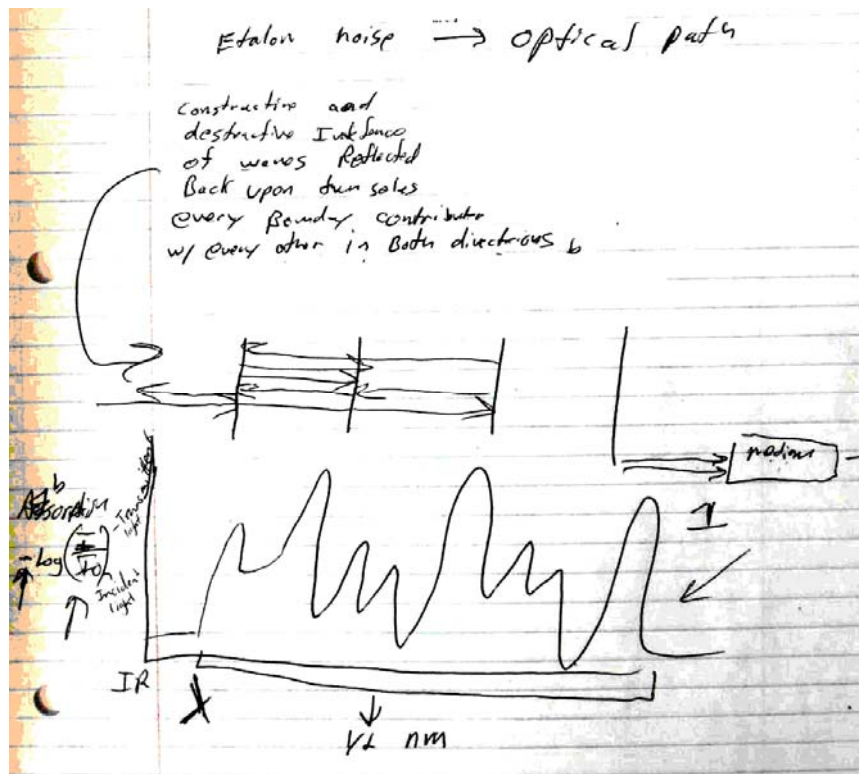 Etalon noise → optical path
constructive and
destructive
of waves Reflected
Back upon
every contributor
w/ every other in Both directions
medium
Absorption
- Log (I/I0)
Transmitted
light
Incident
light
1
IR
nm